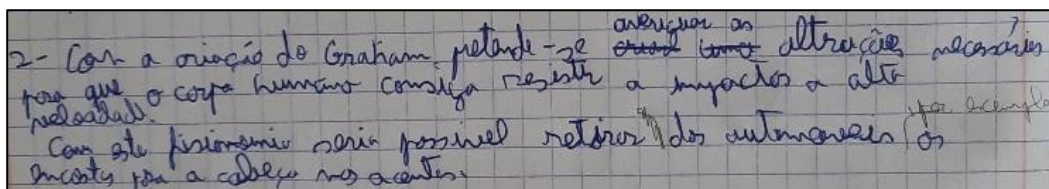 averiguar as
2- Com a criação do Graham, pretende-se altrações necessárias
para que o corpo humano consiga resistir a impactos a alta
velocidad.
Com este fisionomia seria possivel retirar dos automoveis por exemplo os
encostos para a cabeça nos acentos.